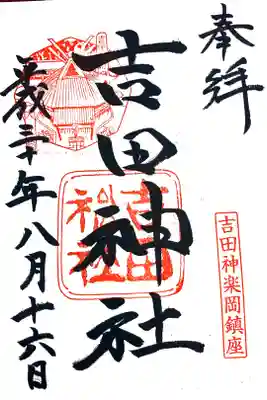 奉拝
吉田神楽岡鎮座
吉田神社
吉田
神社
平成三十年八月十六日